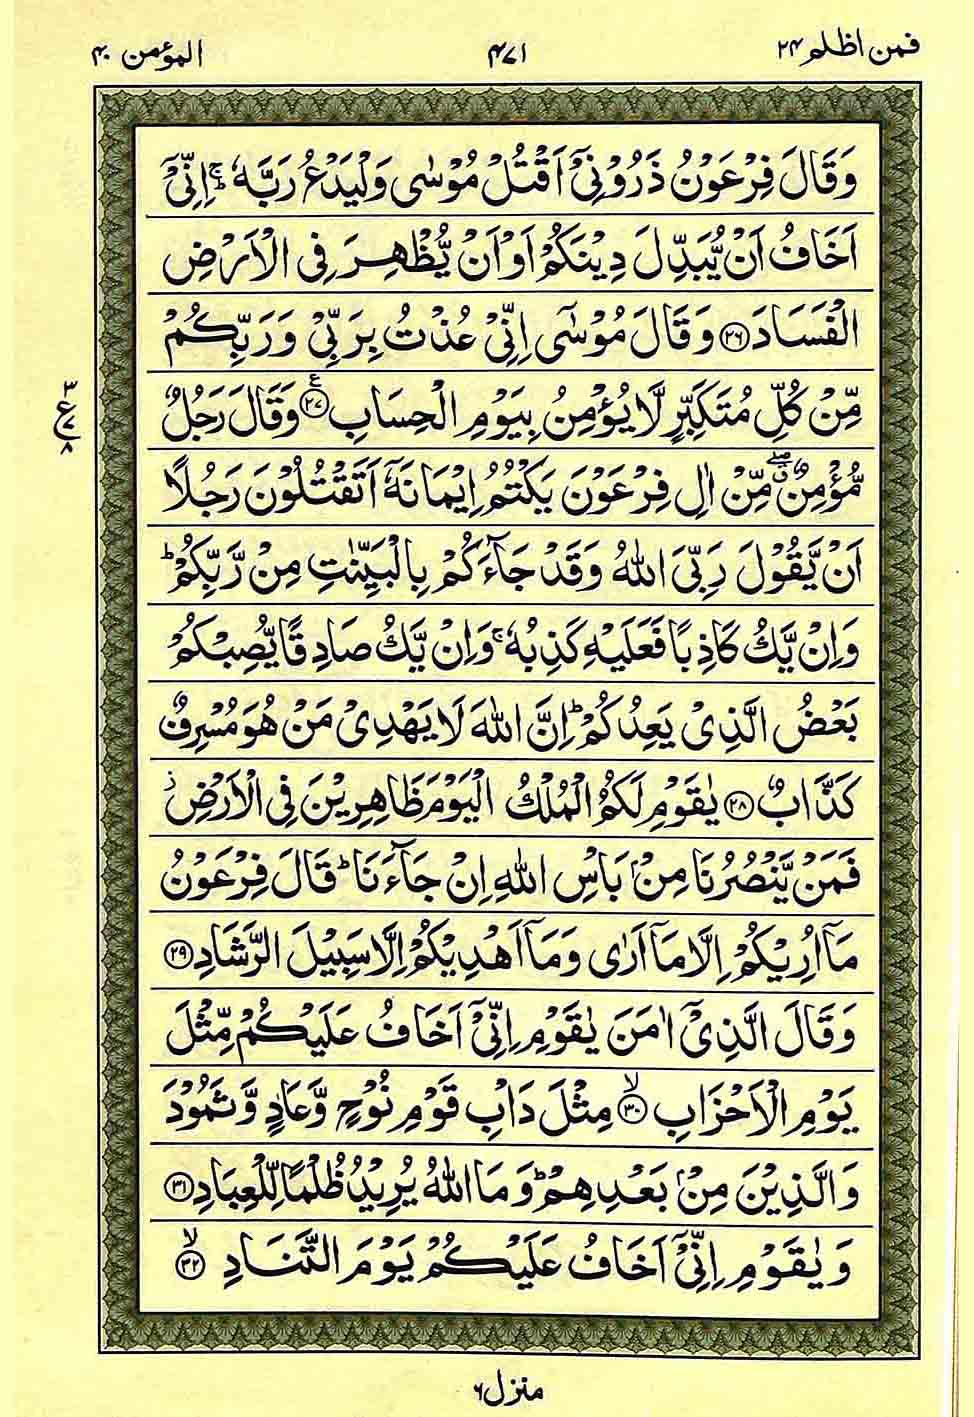 فمن اظلم ۲۴
۴۷۱
المؤمن ۴۰
وَقَالَ فِرْعَوْنُ ذَرُوْنِیْۤ اَقْتُلْ مُوْسٰی وَلْیَدْعُ رَبَّهٗ ۚ اِنِّیْۤ
اَخَافُ اَنْ یُّبَدِّلَ دِیْنَكُمْ اَوْ اَنْ یُّظْهِرَ فِی الْاَرْضِ
الْفَسَادَ ﴿۲۶﴾ وَقَالَ مُوْسٰۤی اِنِّیْ عُذْتُ بِرَبِّیْ وَرَبِّكُمْ
مِّنْ كُلِّ مُتَكَبِّرٍ لَّا یُؤْمِنُ بِیَوْمِ الْحِسَابِ ﴿۲۷﴾ ع وَقَالَ رَجُلٌ
۳
ع
۷
۸
مُّؤْمِنٌ ۖق مِّنْ اٰلِ فِرْعَوْنَ یَكْتُمُ اِیْمَانَهٗۤ اَتَقْتُلُوْنَ رَجُلًا
اَنْ یَّقُوْلَ رَبِّیَ اللّٰهُ وَقَدْ جَآءَكُمْ بِالْبَیِّنٰتِ مِنْ رَّبِّكُمْ ؕ
وَاِنْ یَّكُ كَاذِبًا فَعَلَیْهِ كَذِبُهٗ ۚ وَاِنْ یَّكُ صَادِقًا یُّصِبْكُمْ
بَعْضُ الَّذِیْ یَعِدُكُمْ ؕ اِنَّ اللّٰهَ لَا یَهْدِیْ مَنْ هُوَ مُسْرِفٌ
كَذَّابٌ ﴿۲۸﴾ یٰقَوْمِ لَكُمُ الْمُلْكُ الْیَوْمَ ظَاهِرِیْنَ فِی الْاَرْضِ ؗ
فَمَنْ یَّنْصُرُنَا مِنْۢ بَاْسِ اللّٰهِ اِنْ جَآءَنَا ؕ قَالَ فِرْعَوْنُ
مَاۤ اُرِیْكُمْ اِلَّا مَاۤ اَرٰی وَمَاۤ اَهْدِیْكُمْ اِلَّا سَبِیْلَ الرَّشَادِ ﴿۲۹﴾
وَقَالَ الَّذِیْۤ اٰمَنَ یٰقَوْمِ اِنِّیْۤ اَخَافُ عَلَیْكُمْ مِّثْلَ
یَوْمِ الْاَحْزَابِ ﴿۳۰﴾ ۙ مِثْلَ دَاْبِ قَوْمِ نُوْحٍ وَّعَادٍ وَّثَمُوْدَ
وَالَّذِیْنَ مِنْۢ بَعْدِهِمْ ؕ وَمَا اللّٰهُ یُرِیْدُ ظُلْمًا لِّلْعِبَادِ ﴿۳۱﴾
وَیٰقَوْمِ اِنِّیْۤ اَخَافُ عَلَیْكُمْ یَوْمَ التَّنَادِ ﴿۳۲﴾ ۙ
منزل ۶